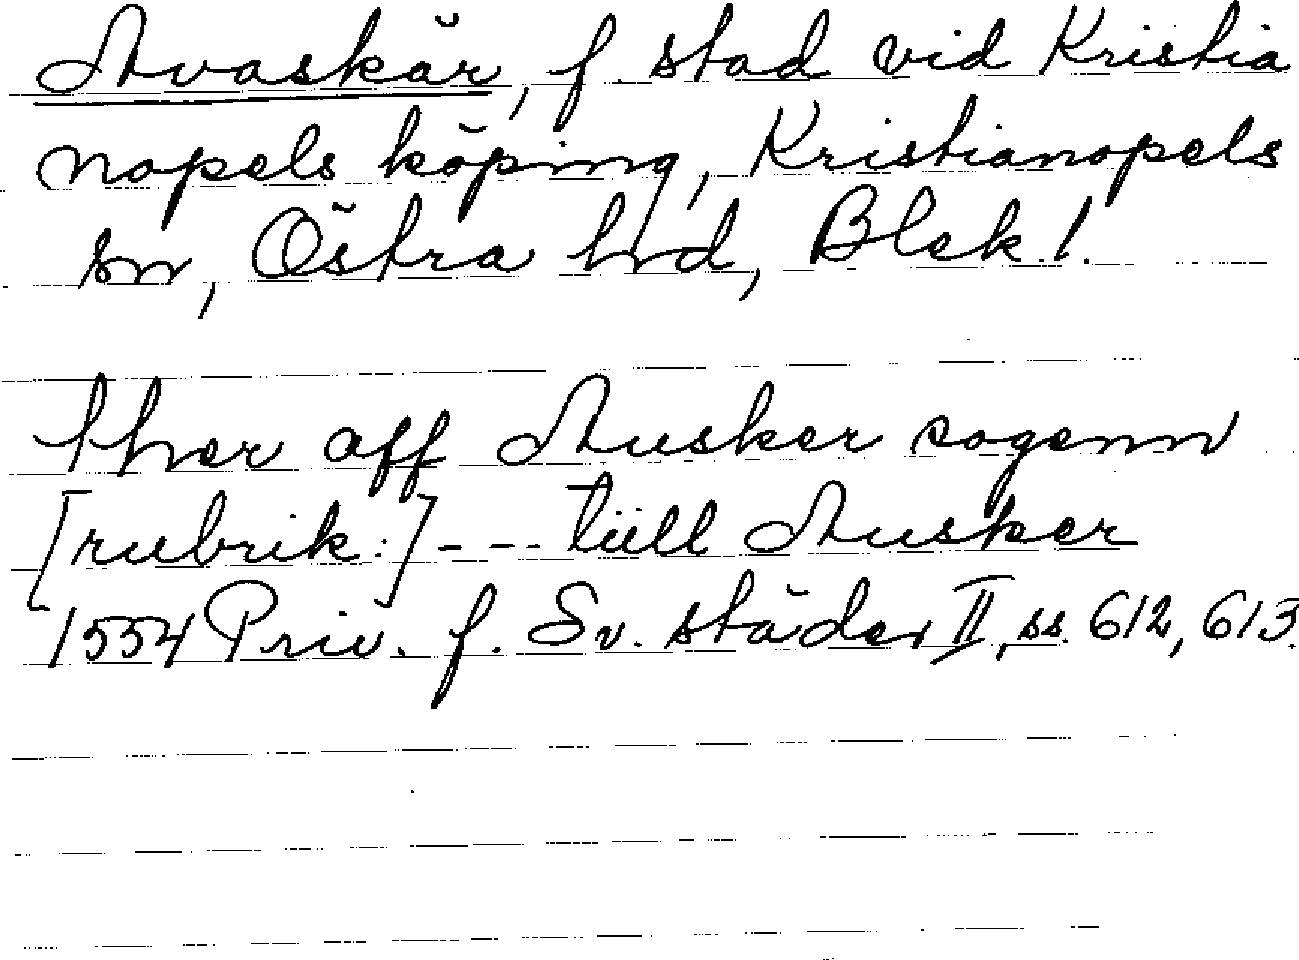 Avaskär, f. stad vid Kristia
nopels köping, Kristianopels
sn, Östra hd, Blek.!
Ther aff Ausker sogenn
[rubrik:] - - - tiill Ausker
1554 Priv. f. Sv. städer II, ss. 612, 613.